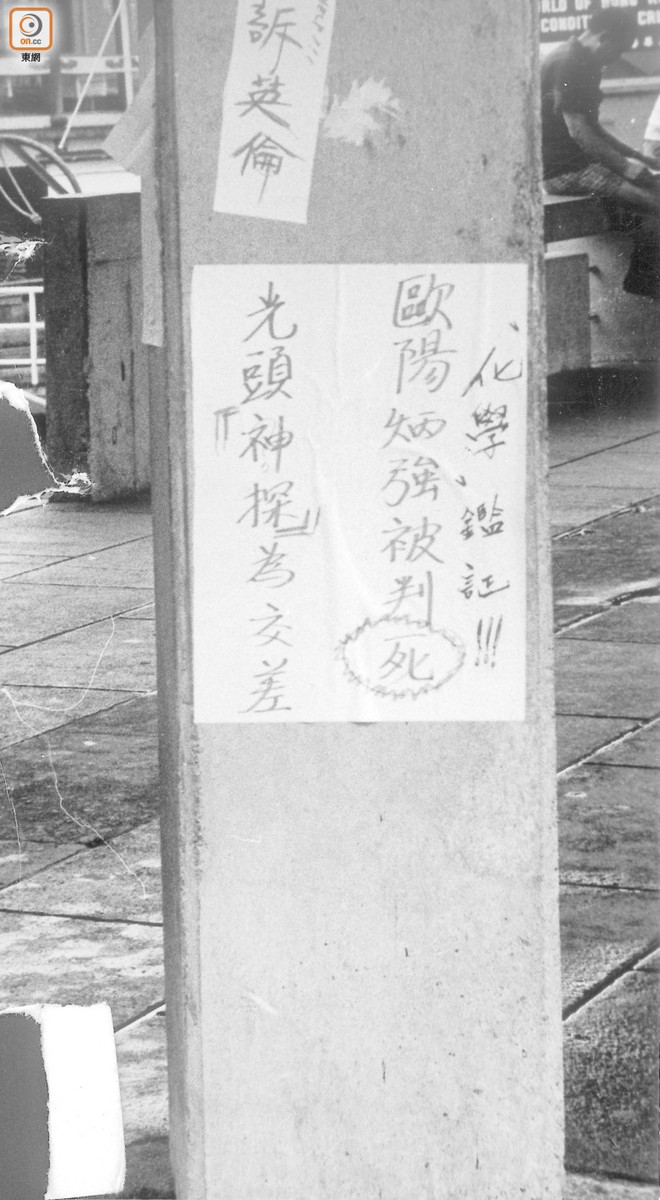 on.cc
東網
訴英倫
化學、鑑証!!!
歐陽炳強被判死
光頭『神探』為交差
CONDIT